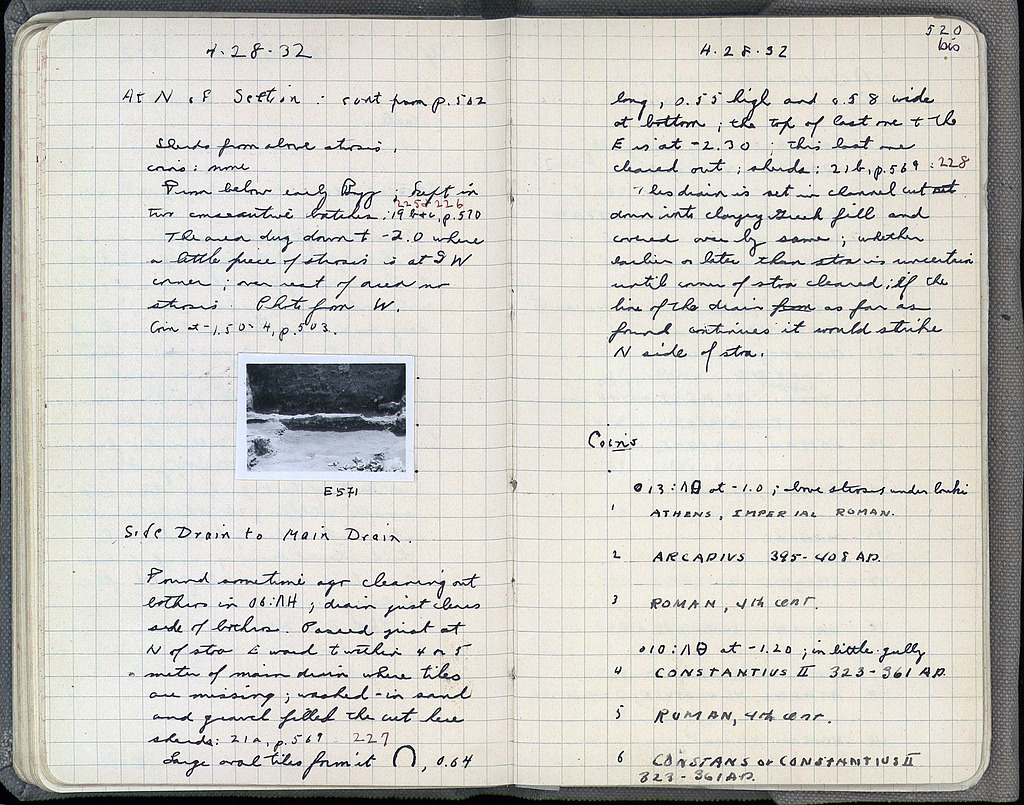 4-28-32
At N of Section : cont from p. 502
Sherds from above strosis,
coins: none
From below early Byz ; kept in
225 & 226
two consecutive batches : 19 b+c, p. 570
The area dug down to -2.0 where
a little piece of strosis is at SW
corner ; over rest of area no
strosis. Photo from W.
Coin at -1.50 - 4, p. 503.
E571
Side Drain to Main Drain.
Found sometime ago cleaning out
bothros in 06:ΛΗ ; drain just clears
side of bothros. Passed just at
N of stoa E ward to within 4 or 5
meters of main drain where tiles
are missing ; washed-in sand
and gravel filled the cut here
sherds: 21a, p. 569 227
Large oval tiles form it , 0.64
520
bis
4.28.32
long, 0.55 high and 0.58 wide
at bottom ; the top of last one to the
E is at -2.30 ; this last one
cleared out ; sherds: 21b, p. 569 : 228
This drain is set in channel cut
down into clayey Greek fill and
covered over by same ; whether
earlier or later than stoa is uncertain
until corner of stoa cleared ; if the
line of the drain from as far as
found continues it would strike
N side of stoa.
Coins
013:ΛΘ at -1.0 ; above strosis under
1 ATHENS, IMPERIAL ROMAN.
2 ARCADIUS 395-408 AD.
3 ROMAN, 4th CENT.
010:ΛΘ at -1.20 ; in little gully
4 CONSTANTIUS II 323-361 AD.
5 ROMAN, 4th CENT.
6 CONSTANS or CONSTANTIUS II
323-361 AD.